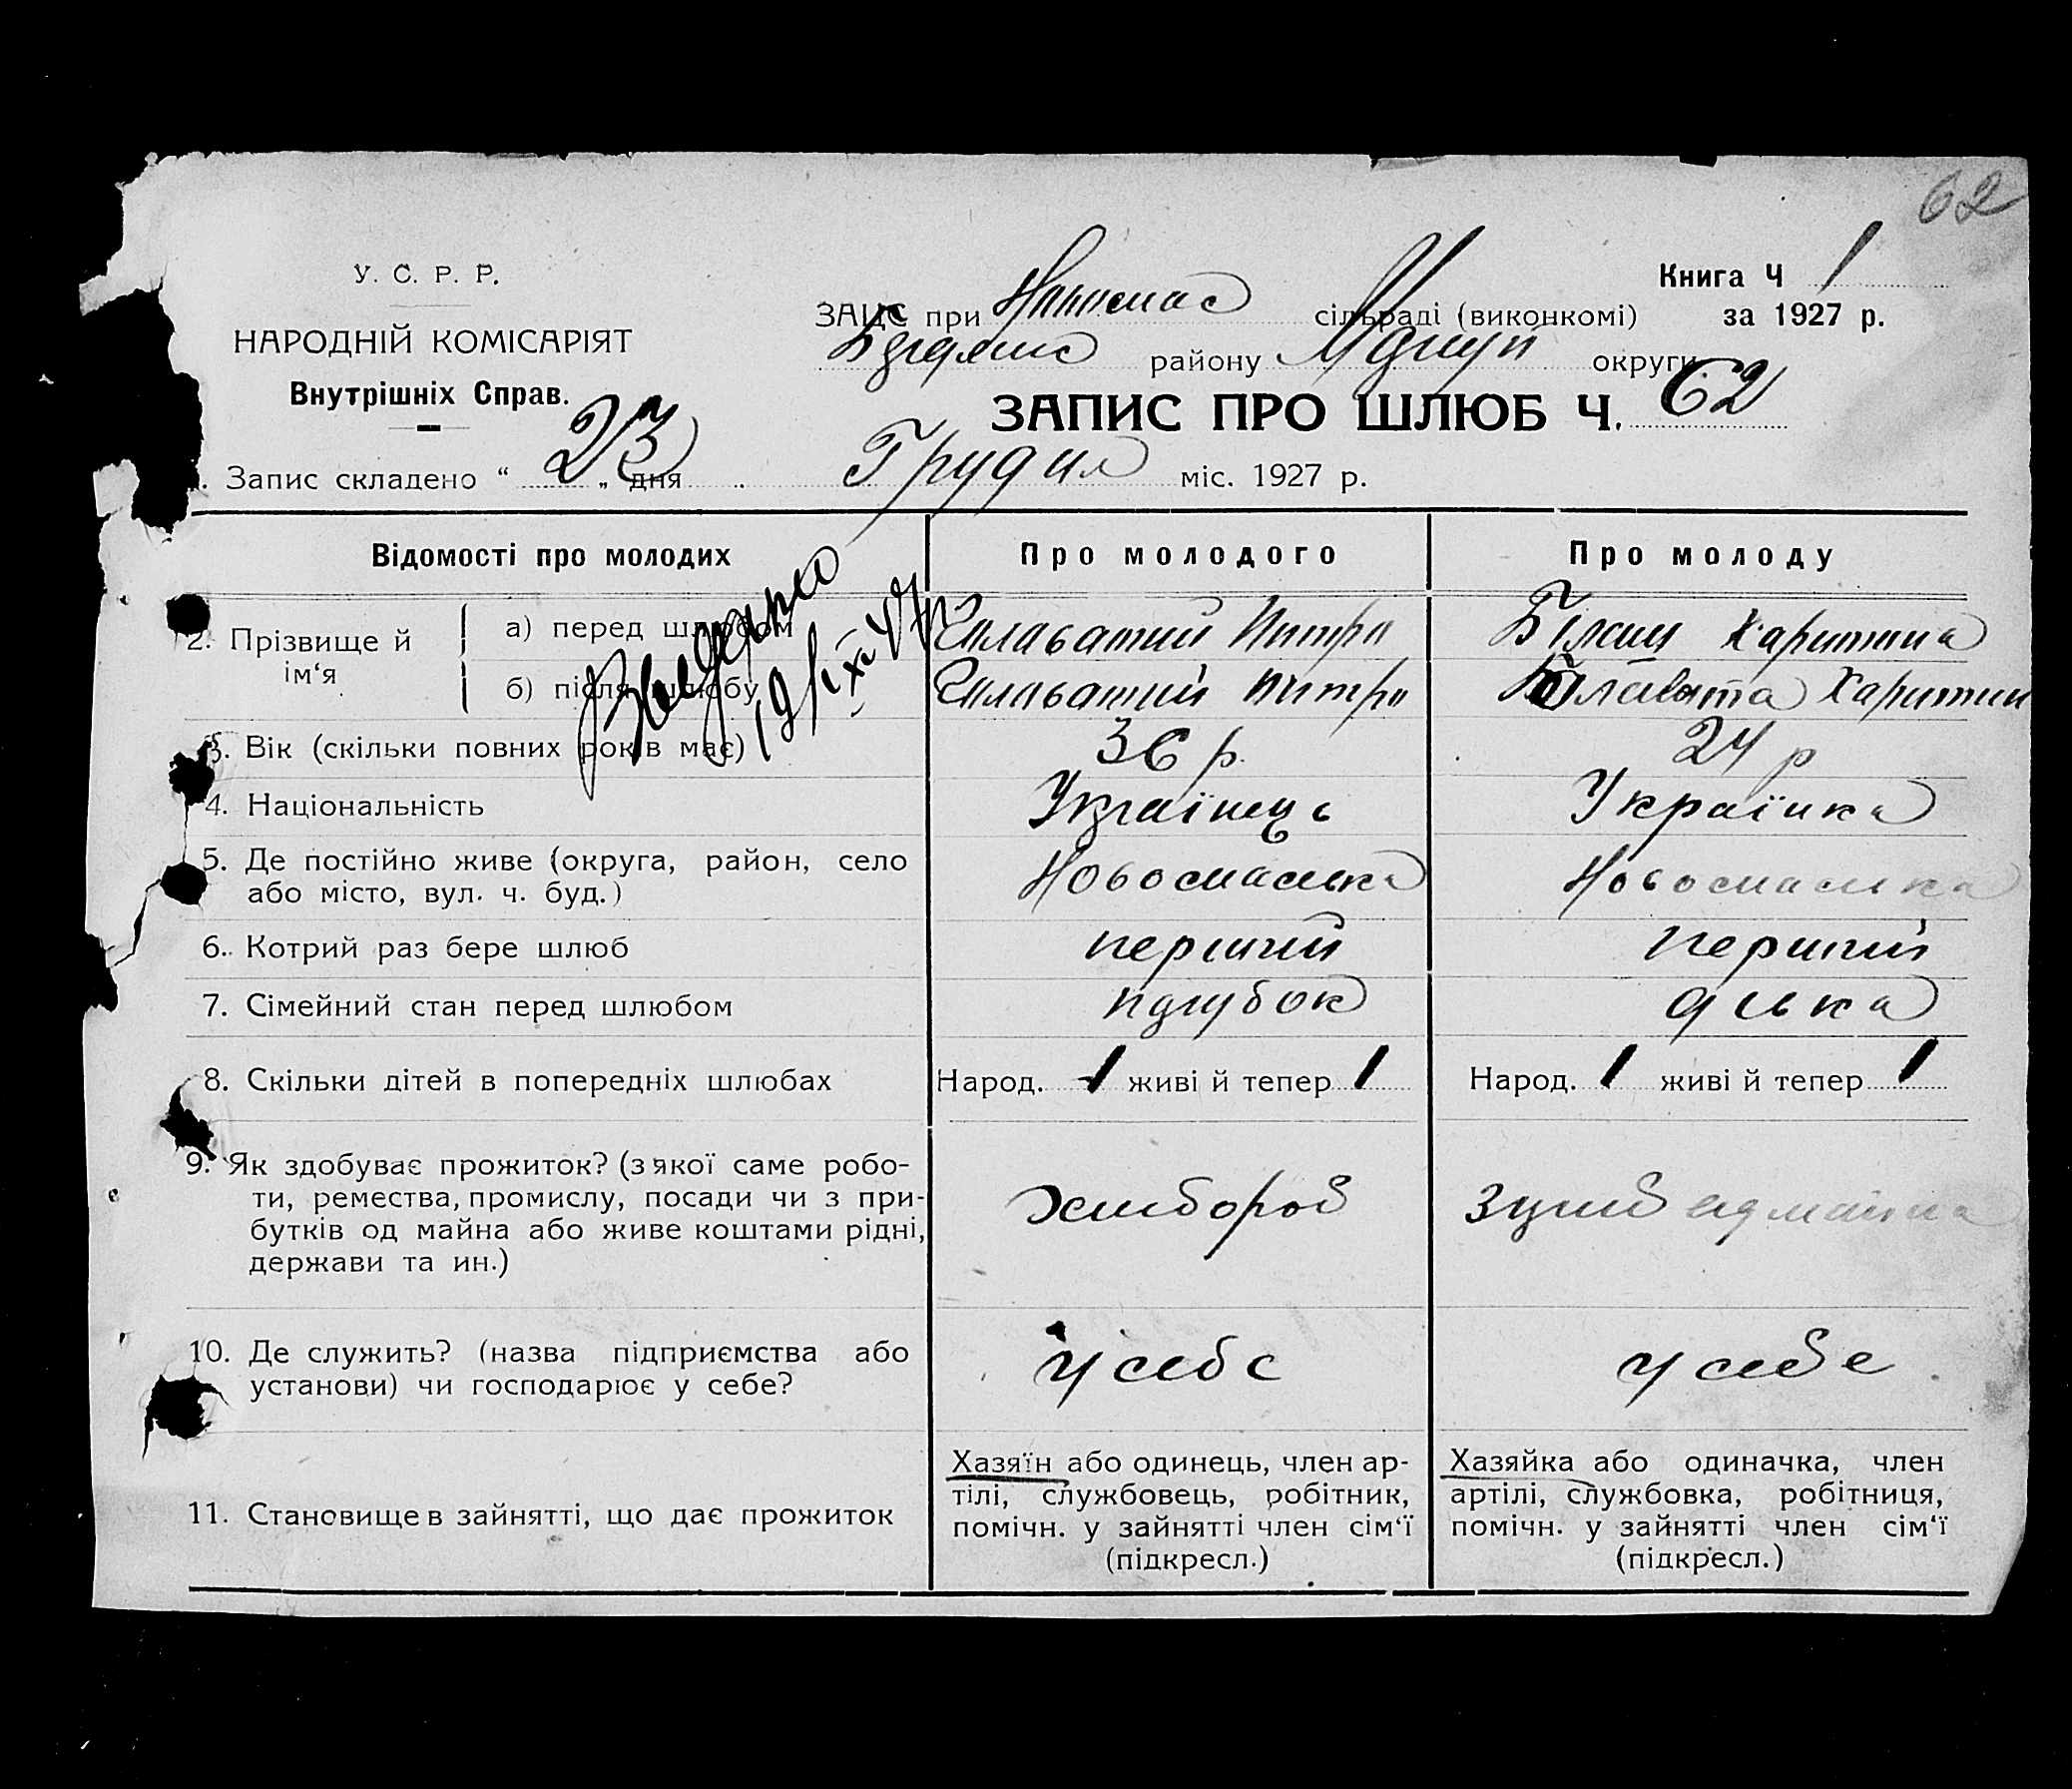 62
У. С. Р. Р.
НАРОДНІЙ КОМІСАРІЯТ
Внутрішніх Справ.
Книга Ч 1
ЗАЦС при сільраді (виконкомі) за 1927 р.
району округи
ЗАПИС ПРО ШЛЮБ Ч. 62
Запис складено “ 23 „ дня Грудня міс. 1927 р.
Відомості про молодих Про молодого Про молоду
2. Прізвище й ім‘я
а) перед шлюбом Салаватий Питро Харитина
б) після шлюбу Салаватий Питро Харитин
3. Вік (скільки повних років має) 36 р. 24 р
4. Національність Українець Українка
5. Де постійно живе (округа, район, село
або місто, вул. ч. буд.)
6. Котрий раз бере шлюб перший перший
7. Сімейний стан перед шлюбом парубок дівка
8. Скільки дітей в попередніх шлюбах Народ. 1 живі й тепер 1 Народ. 1 живі й тепер 1
9. Як здобуває прожиток? (з якої саме робо-
ти, ремества, промислу, посади чи з при-
бутків од майна або живе коштами рідні,
держави та ин.)
хлибороб
10. Де служить? (назва підприємства або
установи) чи господарює у себе?
у себе у себе
11. Становище в зайнятті, що дає прожиток
Хазяїн або одинець, член ар-
тілі, службовець, робітник,
помічн. у зайнятті член сім‘ї
(підкресл.)
Хазяйка або одиначка, член
артілі, службовка, робітниця,
помічн. у зайнятті член сім‘ї
(підкресл.)